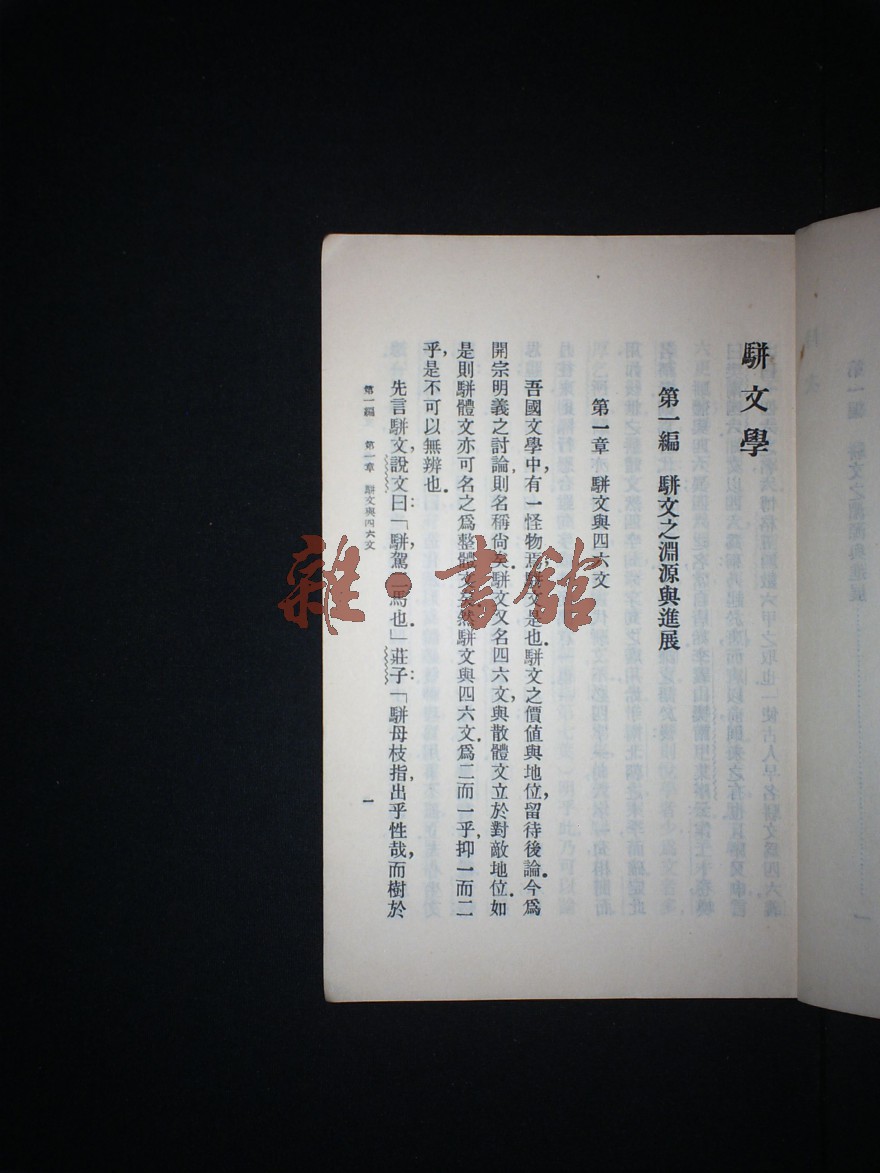 駢文學
第一編　駢文之淵源與進展
第一章　駢文與四六文
吾國文學中，有一怪物焉，駢文是也．駢文之價值與地位，留待後論．今爲
開宗明義之討論，則名稱尙矣．駢文又名四六文，與散體文立於對敵地位．如
是則駢體文亦可名之爲整體文矣．然駢文與四六文，爲二而一乎，抑一而二
乎，是不可以無辨也．
先言駢文，說文曰：「駢，駕二馬也．」莊子：「駢母枝指，出乎性哉，而樹於
第一編　第一章　駢文與四六文
一
雜·書館
第一編　駢文之淵源與進展